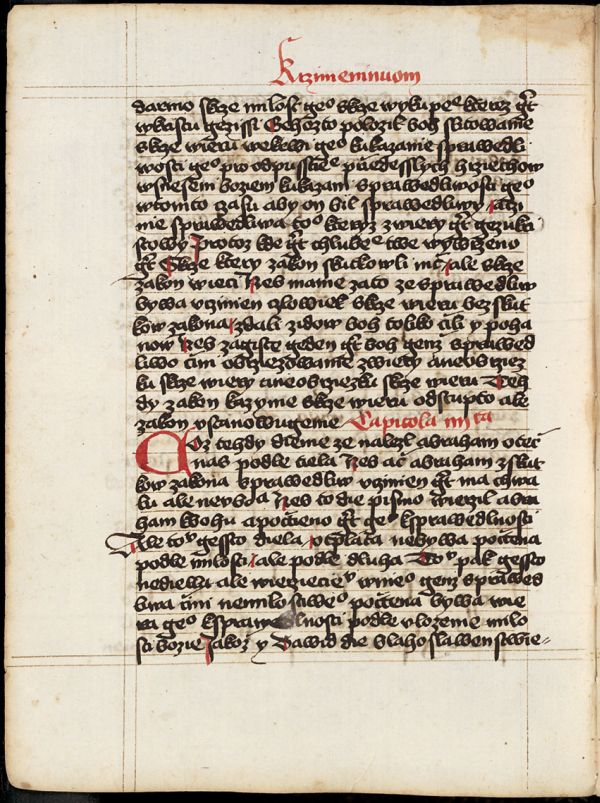 K rzimeninuom
darmo skrze milost geᵒ skrze wykupeᵉ kterez gt
wkristu gezissi Gehozto polozil boh slitowanie
skrze wieru wekrwi geᵒ kukazanie sprawedli
wosti geᵒ pro odpusstieᵉ przedesslych hrziechow
wsnesení boziem kukazaní sprawedliwosti geᵒ
wtomto czasu aby on bil sprawedliwy a czi
nie sprawedliwa toᵒ kteryz z wiery gt gezukri
stowy Protoz kde gt chlubeᵉ twe wywrzeno
gt Skrze ktery zakon skutkowli nic ale skrze
zakon wieri Nes mame zato ze sprawedliw
bywa vczinien czlowiek skrze wieru bez skut
kow zakona zdali zidow boh toliko czili y poha
now Nes zagiste geden gt boh genz sprawed
liwo czini obrziezowanie z wiery a neobrziez
ku skrze wiery a neobrziezku skrze wieru Teh
dy zakon kazyme skrze wieru odstupto ale
zakon vstanowugeme Capitola iiii ta
Coz tehdy dieme ze nalezl abraham otec
nas podle tiela Nes ac abraham z skut
kow zakona sprawedliw vczinien gt ma chwa
lu ale nevboha Nes to die pismo wierzil abra
ham bohu a pocteno gt geᵒ ksprawedlnosti
Ale toᵛ gessto diela otplata nebywa poctena
podle milosti ale podle dluha Toᵛ pak gessto
nediela ale wierzicieᵛ wnieoᵒ genz sprawed
liwa czini nemilostiweᵒ poctena bywa wie
ra geᵒ ksprawedlnosti podle vlozenie milo
sti bozie Jakoz y Dawid die blahoslawenstwie